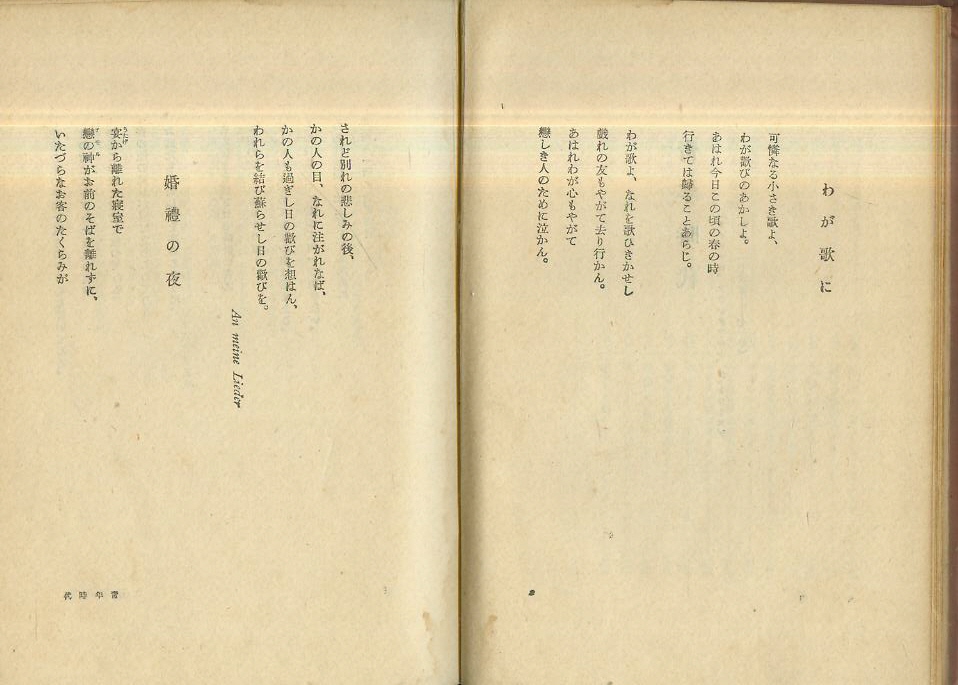 わが歌に
可憐なる小さき歌よ、
わが歡びのあかしよ。
あはれ今日この頃の春の時
行きては歸ることあらじ。
わが歌よ、なれを歌ひきかせし
戲れの友もやがて去り行かん。
あはれわが心もやがて
戀しき人のために泣かん。
されど別れの悲しみの後、
かの人の目、なれに注がれなば、
かの人も過ぎし日の歡びを想はん、
われらを結び蘇らせし日の歡びを。
An meine Lieder
婚禮の夜
宴から離れた寢室で
戀の神がお前のそばを離れずに、
いたづらなお客のたくらみが
靑年時代